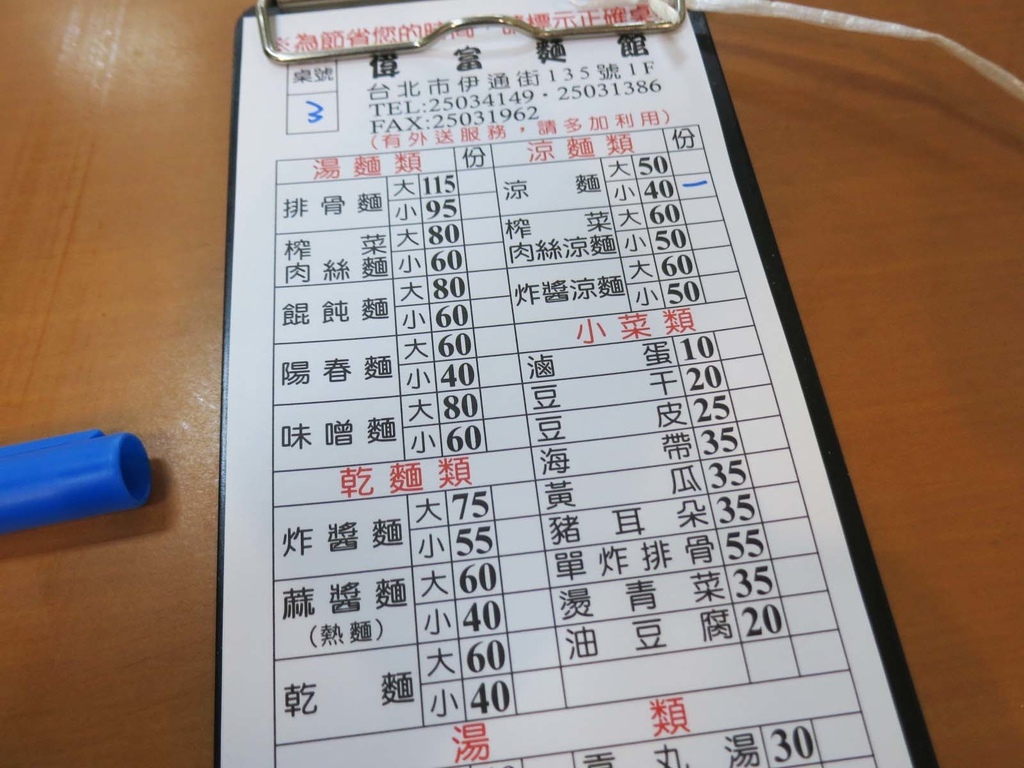 為節省您的時間，請標示正確桌
偉富麵館
桌號
3
台北市伊通街135號1F
TEL:25034149・25031386
FAX:25031962
(有外送服務，請多加利用)
湯麵類 份
排骨麵 大 115
小 95
榨菜肉絲麵 大 80
小 60
餛飩麵 大 80
小 60
陽春麵 大 60
小 40
味噌麵 大 80
小 60
乾麵類
炸醬麵 大 75
小 55
蔴醬麵(熱麵) 大 60
小 40
乾麵 大 60
小 40
涼麵類 份
涼麵 大 50
小 40 一
榨菜肉絲涼麵 大 60
小 50
炸醬涼麵 大 60
小 50
小菜類
滷蛋 10
豆干 20
豆皮 25
海帶 35
黃瓜 35
豬耳朵 35
單炸排骨 55
燙青菜 35
油豆腐 20
湯類
貢丸湯 30